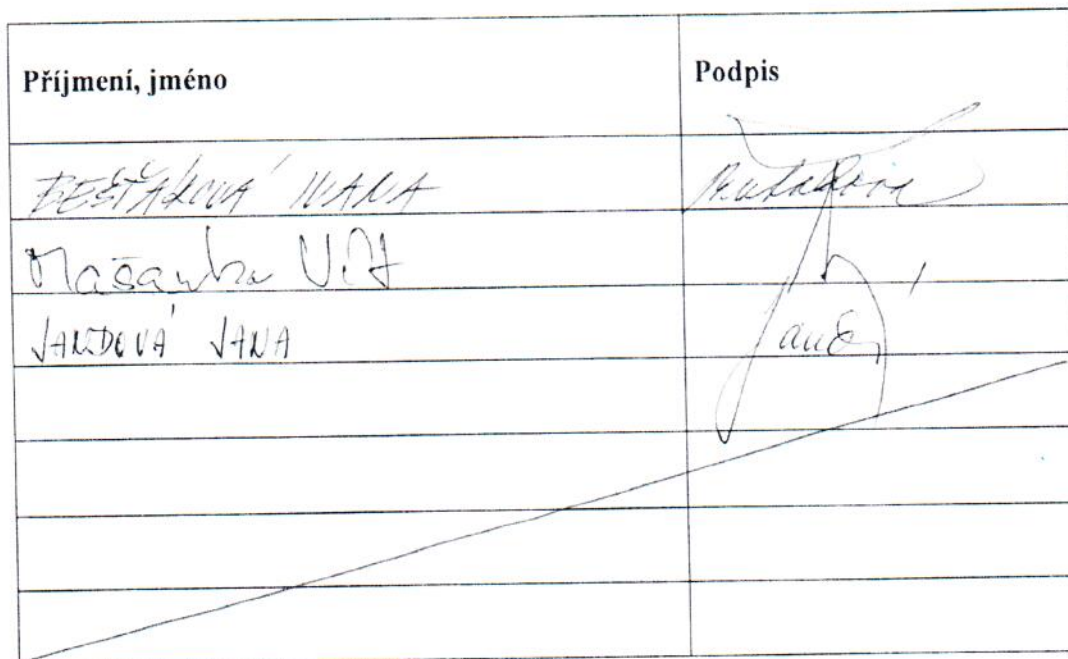 Příjmení, jméno Podpis
BEŠŤÁKOVÁ IVANA
Mašanka Vít
JANDOVÁ JANA